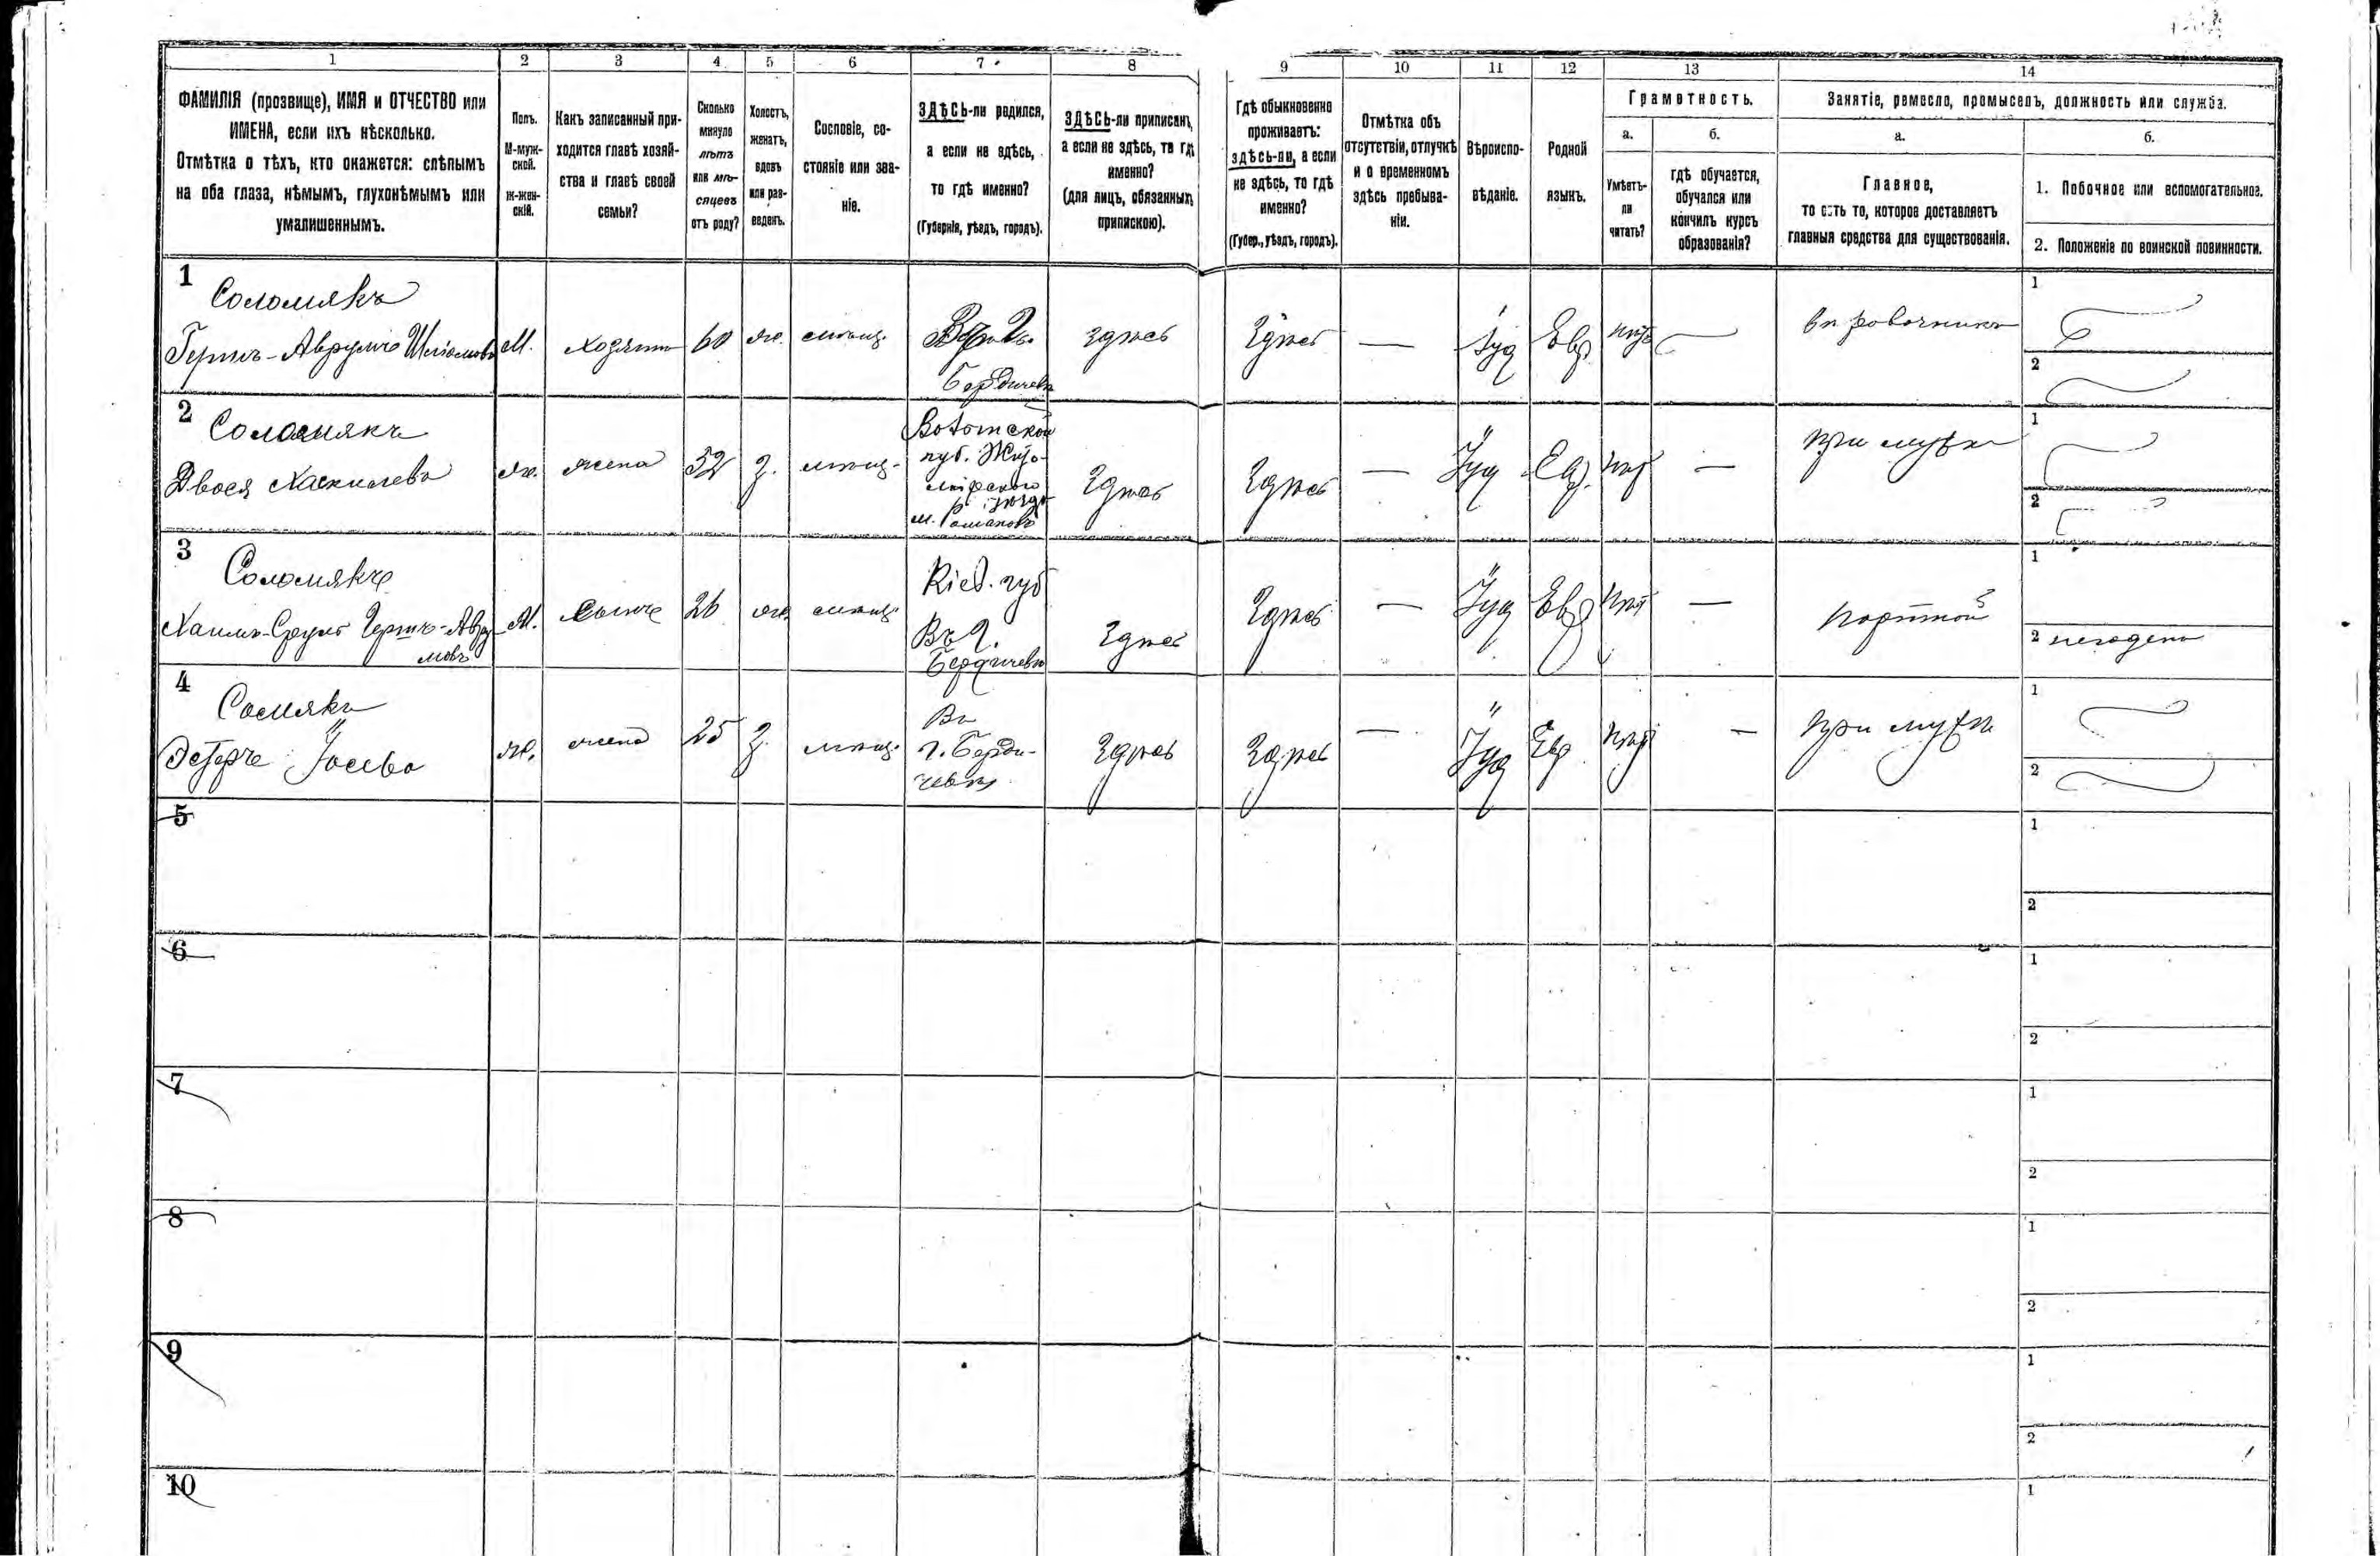 1 2 3 4 5 6 7 8 9 10 11 12 13 14
ФАМИЛІЯ (прозвище), ИМЯ и ОТЧЕСТВО или
ИМЕНА, если ихъ нѣсколько.
Отмѣтка о тѣхъ, кто окажется: слѣпымъ
на оба глаза, нѣмымъ, глухонѣмымъ или
умалишеннымъ.
Полъ.
М-муж-
ской.
Ж-жен-
скій.
Какъ записанный при-
ходится главѣ хозяй-
ства и главѣ своей
семьи?
Сколько
минуло
лѣтъ
или мѣ-
сяцевъ
отъ роду?
Холостъ,
женатъ,
вдовъ
или раз-
веденъ.
Сословіе, со-
стояніе или зва-
ніе.
ЗДѢСЬ-ли родился,
а если не здѣсь,
то гдѣ именно?
(Губернія, уѣздъ, городъ).
ЗДѢСЬ-ли приписанъ,
а если не здѣсь, то гдѣ
именно?
(для лицъ, обязанныхъ
припискою).
Гдѣ обыкновенно
проживаетъ:
здѣсь-ли, а если
не здѣсь, то гдѣ
именно?
(Губер., уѣздъ, городъ).
Отмѣтка объ
отсутствіи, отлучкѣ
и о временномъ
здѣсь пребыва-
ніи.
Вѣроиспо-
вѣданіе.
Родной
языкъ.
Грамотность.
а.
Умѣетъ-
ли
читать?
б.
гдѣ обучается,
обучался или
кончилъ курсъ
образованія?
Занятіе, ремесло, промыселъ, должность или служба.
а.
Главное,
то есть то, которое доставляетъ
главныя средства для существованія.
б.
1. Побочное или вспомогательное.
2. Положеніе по воинской повинности.
1
Соломякъ
Гершъ-Аврумъ
М. хозяинъ 60 ж. мѣщ.
Бердичевъ
здѣсь Здѣсь — Іуд Евр нѣт
1
2
2
Соломякъ
Двося Хаскилева
ж. жена 52 з. мѣщ.
Волынской
губ. Жито-
мірскаго
уѣзда
м. Романовъ
Здѣсь Здѣсь — Іуд Евр. нѣт — При мужѣ
1
2
3
Соломякъ
Хаимъ-Сруль Гершъ-Авру
мовъ
М. сынъ 26 ж. мѣщ.
Кіев. губ
Въ г.
Бердичевѣ
Здѣсь Здѣсь — Іуд Евр нѣт — портной
1
2 негоденъ
4
Сомякъ
Эстеръ Іосева
ж. жена 25 з. мѣщ.
Въ
г. Берди-
чевѣ
Здѣсь Здѣсь — Іуд Евр нѣт — При мужѣ
1
2
5
1
2
6
1
2
7
1
2
8
1
2
9
1
2
10
1